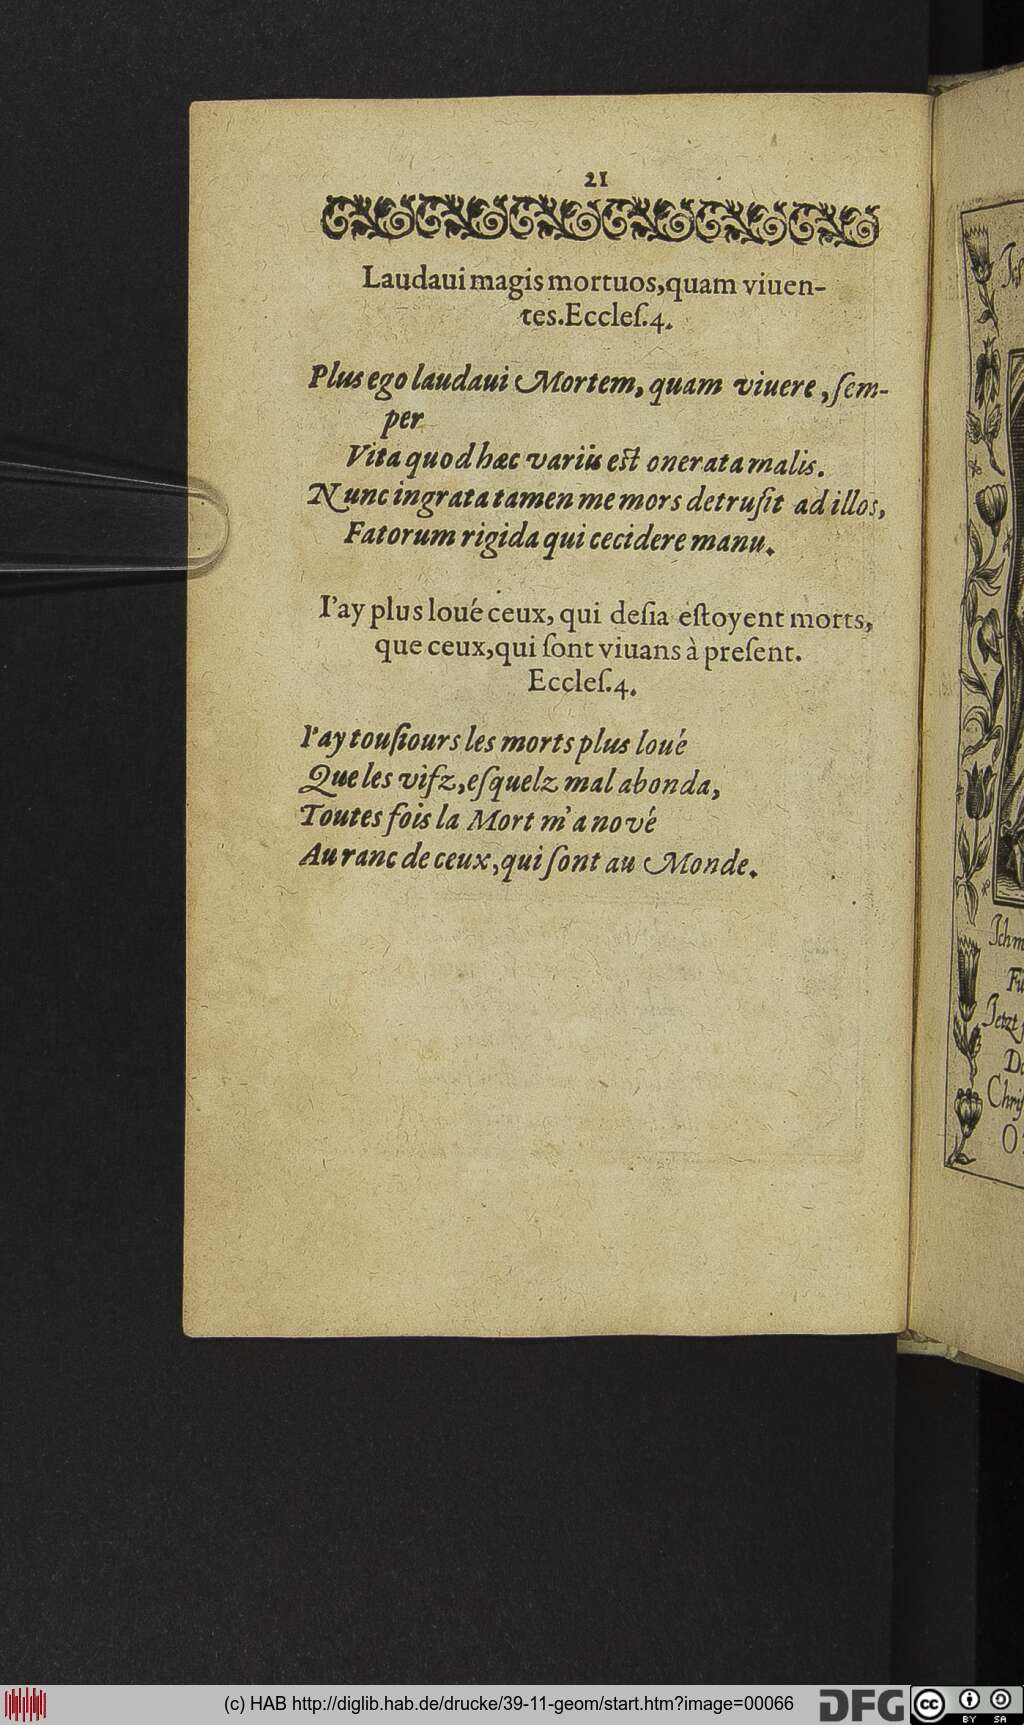 21
Laudaui magis mortuos, quam viuen-
tes. Eccleſ. 4.
Plus ego laudaui Mortem, quam viuere, ſem-
per
Vita quod hæc variis est onerata malis.
Nunc ingrata tamen me mors detruſit ad illos,
Fatorum rigida qui cecidere manu.
I'ay plus loué ceux, qui deſia eſtoyent morts,
que ceux, qui ſont viuans à preſent.
Eccleſ. 4.
I'ay touſiours les morts plus loué
Que les vifz, eſquelz mal abonda,
Toutes fois la Mort m'a nové
Au ranc de ceux, qui ſont au Monde.
Jch
Jetzt
(c) HAB http://diglib.hab.de/drucke/39-11-geom/start.htm?image=00066
DFG
cc
BY SA